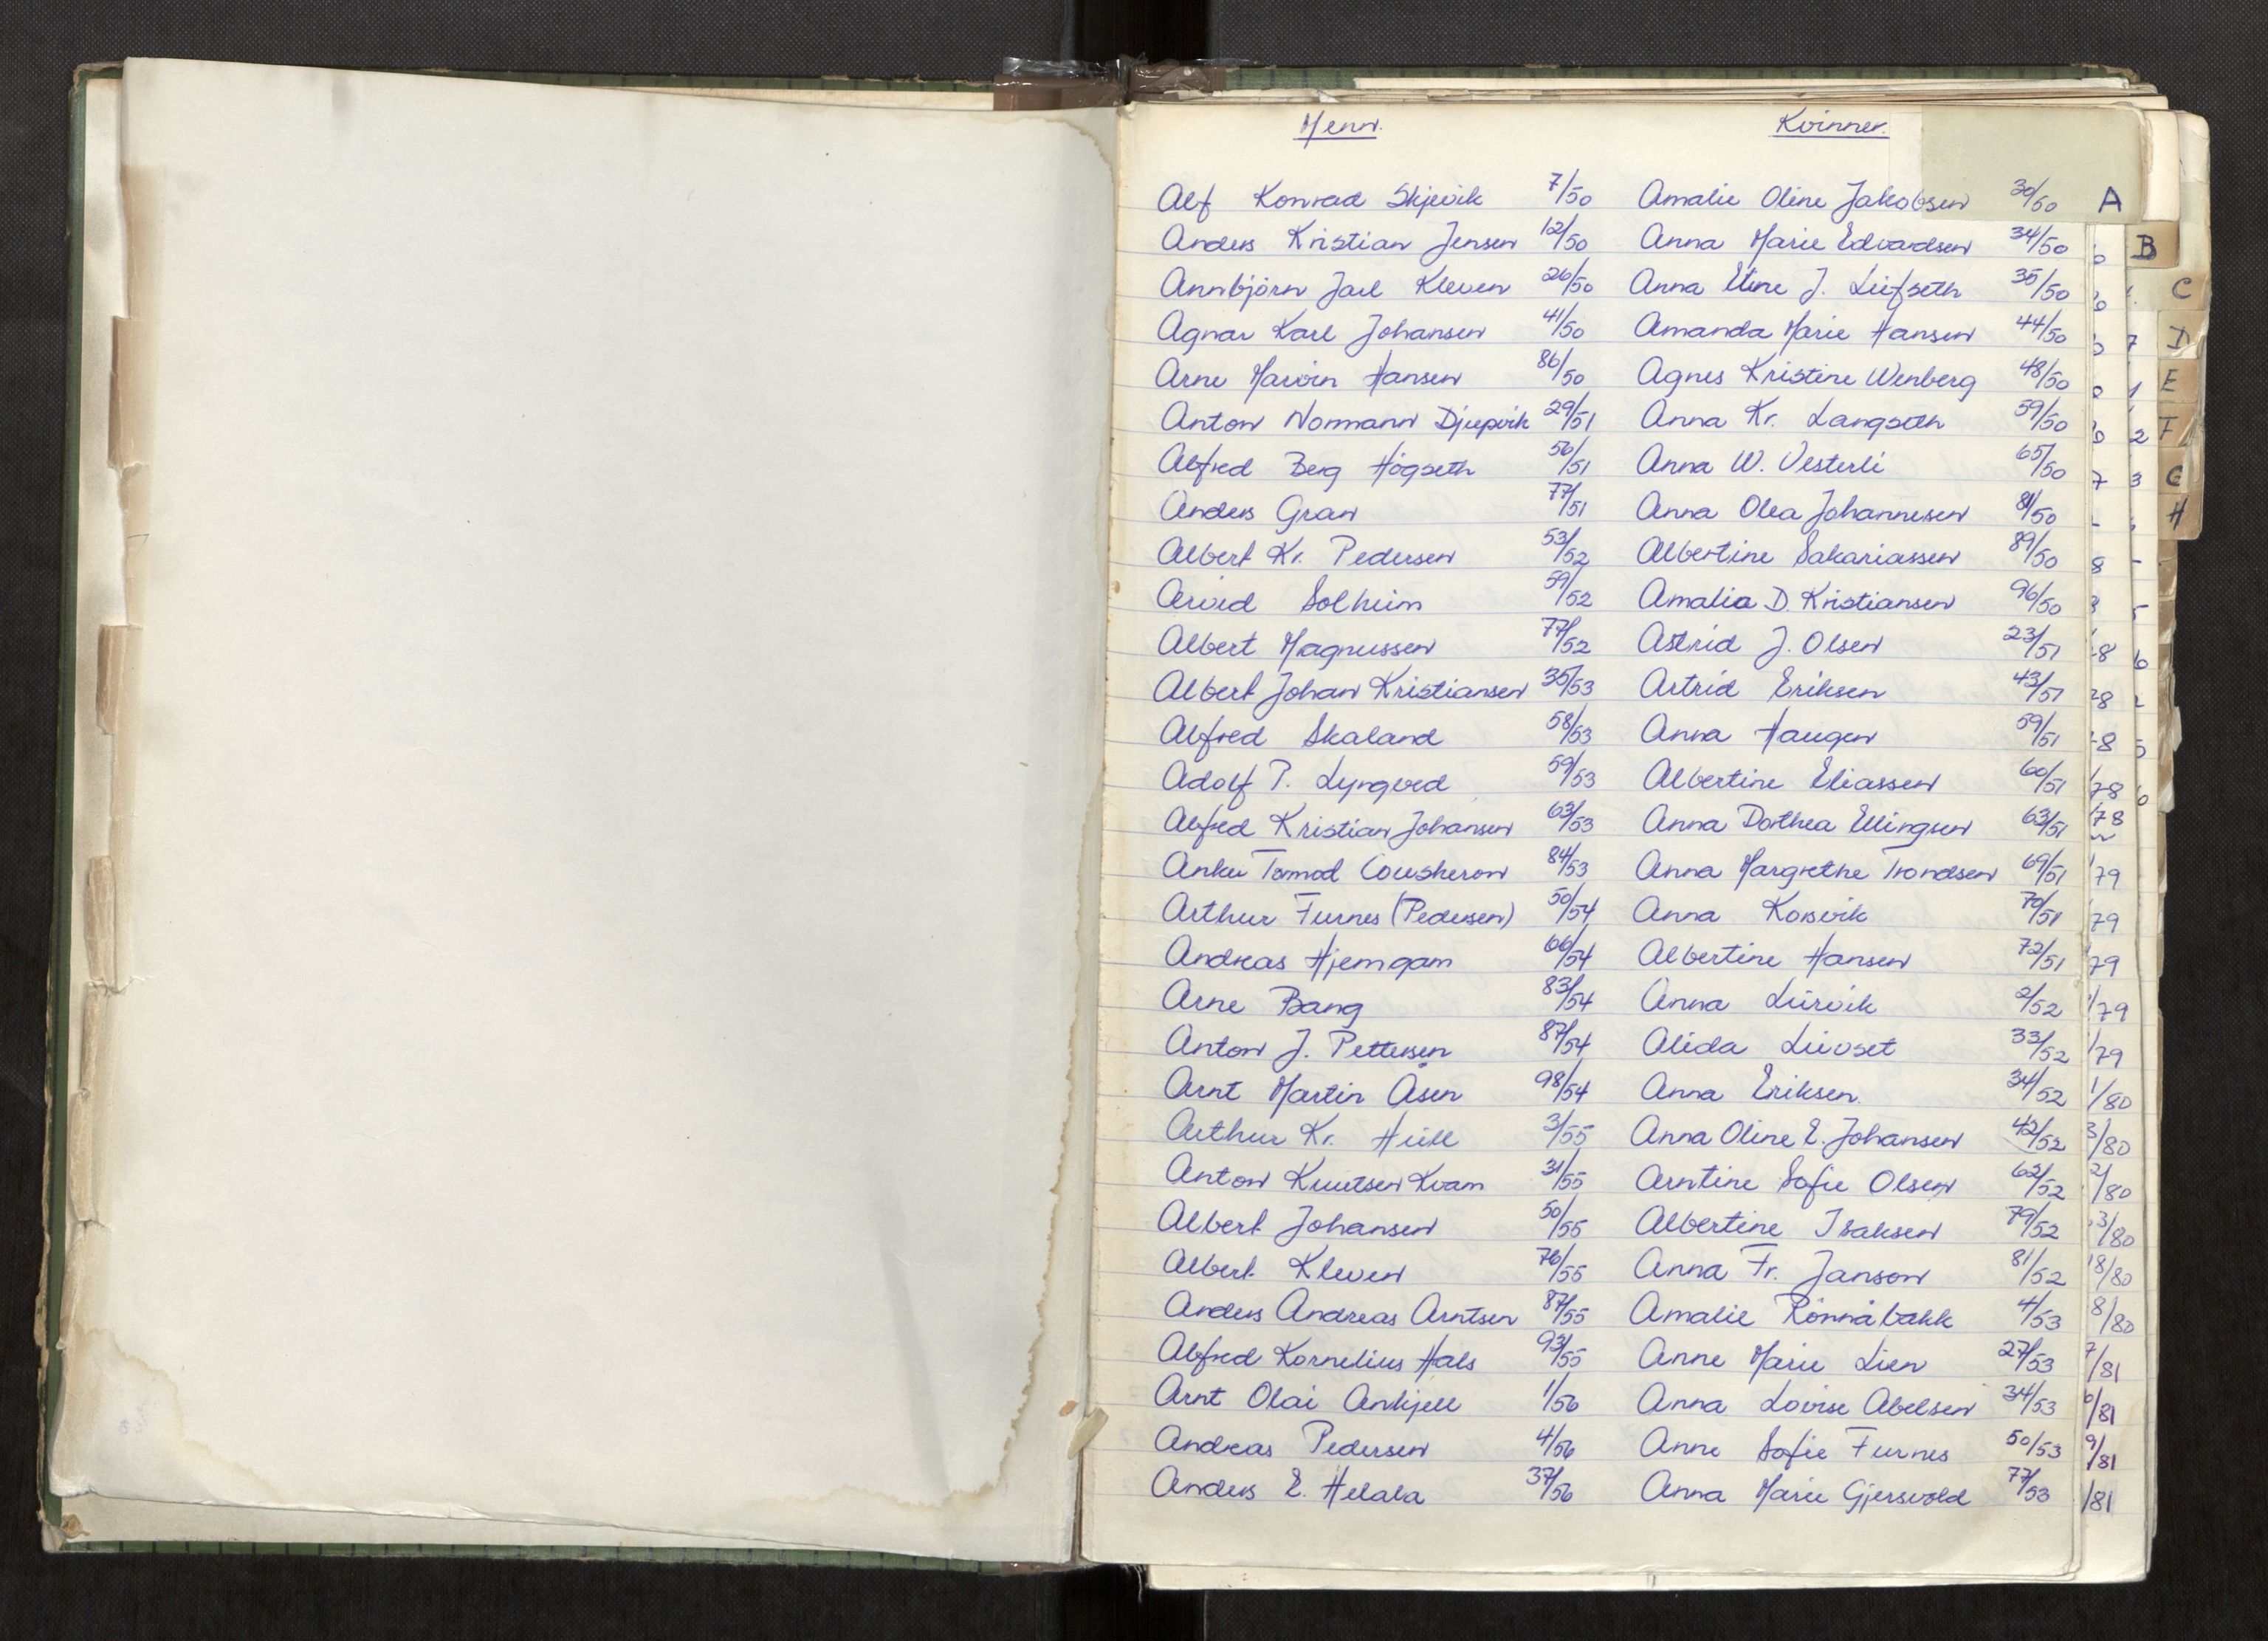 Menn. Kvinner.
Alf Konrad Skjevik 7/50 Amalie Oline Jakobsen 30/50 A
Anders Kristian Jensen 12/50 Anna Marie Edvardsen 34/50 B
Annbjörn Jarl Kleven 26/50 Anna Eline J. Leifseth 35/50 C
Agnar Karl Johansen 41/50 Amanda Marie Hansen 44/50 7 D
Arne Marvin Hansen 86/50 Agnes Kristine Wenberg 48/50 1 E
Anton Normann Djupvik 29/51 Anna Kr. Langseth 59/50 2 F
Alfred Berg Högseth 56/51 Anna W. Vesterli 65/50 7 3 G
Anders Gran 77/51 Anna Olea Johannesen 81/50 H
Albert Kr. Pedersen 53/52 Albertine Sakariassen 89/50 8
Arvid Solheim 59/52 Amalia D. Kristiansen 96/50
Albert Magnussen 77/52 Astrid J. Olsen 23/51 8 6
Albert Johan Kristiansen 35/53 Astrid Eriksen 43/51 8
Alfred Skaland 58/53 Anna Haugen 59/51 8
Adolf P. Lyngved 59/53 Albertine Eliassen 60/51 /78
Alfred Kristian Johansen 63/53 Anna Dorthea Ellingsen 63/51 /78
Tormod 84/53 Anna Margrethe Trondsen 69/51 /79
Arthur Furnes (Pedersen) 50/54 Anna Korsvik 70/51 /79
Andreas Hjemgam 66/54 Albertine Hansen 72/51 /79
Arne Bang 83/54 Anna Leirvik 2/52 /79
Anton J. Pettersen 87/54 Alida Leivset 33/52 /79
Arnt Martin Åsen 98/54 Anna Eriksen. 34/52 1/80
Arthur Kr. Heill 3/55 Anna Oline E. Johansen 42/52 3/80
Anton Knutsen Kvam 31/55 Arntine Sofie Olsen 62/52 2/80
Albert Johansen 50/55 Albertine Isaksen 79/52 3/80
Albert Kleven 76/55 Anna Fr. Janson 81/52 18/80
Anders Andreas Arntsen 87/55 Amalie Rönnåbakk 4/53 8/80
Alfred Kornelius Hals 93/55 Anne Marie Lien 27/53 7/81
Arnt Olai Ankjell 1/56 Anna Lovise Abelsen 34/53 6/81
Andreas Pedersen 4/56 Anne Sofie Furnes 50/53 9/81
Anders E. Helala 37/56 Anna Marie Gjersvold 77/53 /81